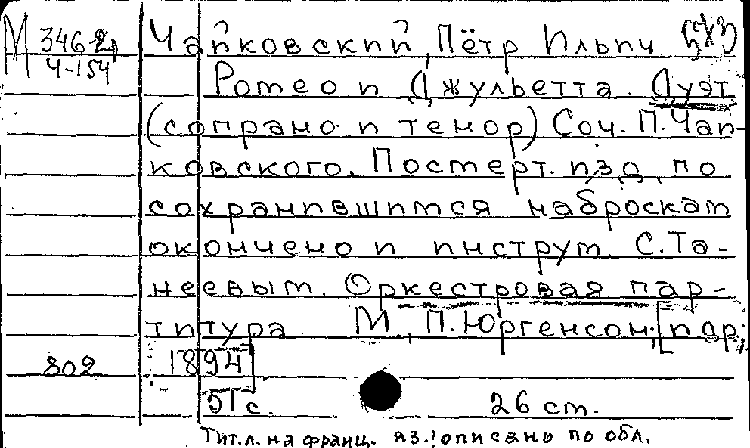 М 346-2
Ч-154
Чайковский, Пётр Ильич
Ромео и Джульетта. Дуэт
(сопрано и тенор) Соч. П. Чай-
ковского. Посмерт. изд. по
сохранившимся наброскам
окончено и инструм. С. Та-
неевым. Оркестровая пар-
титура М., П. Юргенсон; [пар,
802 1894]
51 с. 26 см.
Тит. л. на франц. яз.; описано по обл.